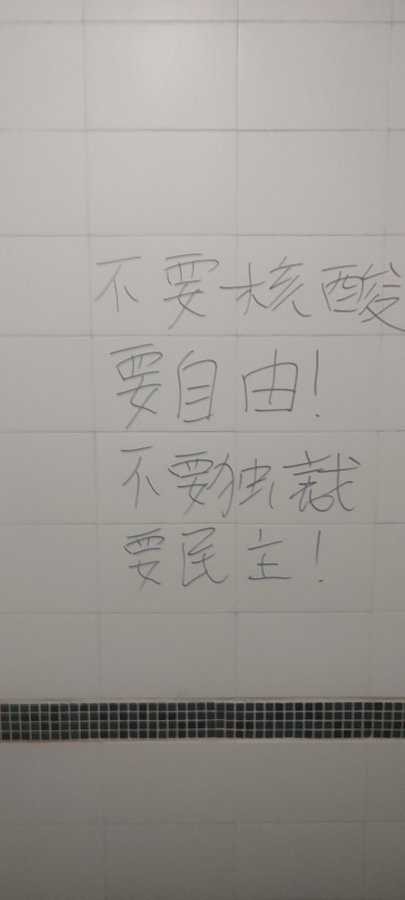 不要核酸
要自由!
不要独裁
要民主!